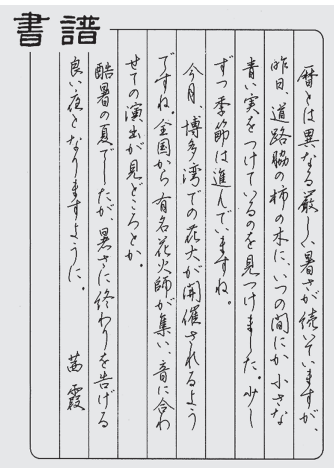 書譜
暦とは異なる厳しい暑さが続いていますが、
昨日、道路脇の柿の木に、いつの間にか小さな
青い実をつけているのを見つけました。少し
ずつ季節は進んでいますね。
今月、博多湾での花火が開催されるよう
ですね。全国から有名花火師が集い、音に合わ
せての演出が見どころとか。
酷暑の夏でしたが、暑さに終わりを告げる
良い夜となりますように。
茜霞